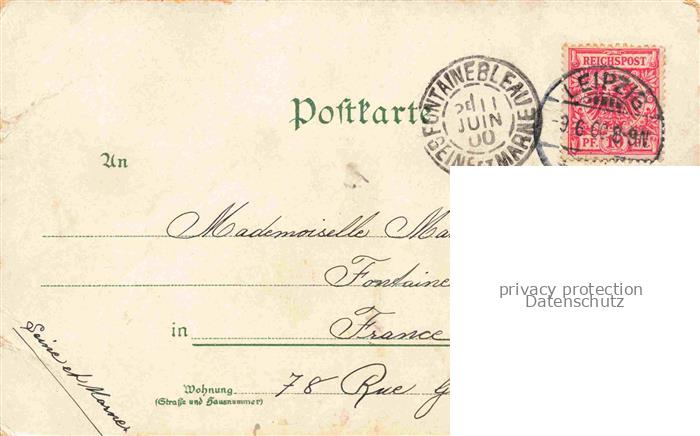 REICHSPOST
LEIPZIG
-9.6.00.8-9N.
PF. 10
FONTAINEBLEAU
11
JUIN
00
SEINE ET MARNE
Postkarte
An
Mademoiselle Ma
Fontaine
in France
Seine et Marne
Wohnung 78 Rue G
(Straße und Hausnummer)
privacy protection
Datenschutz